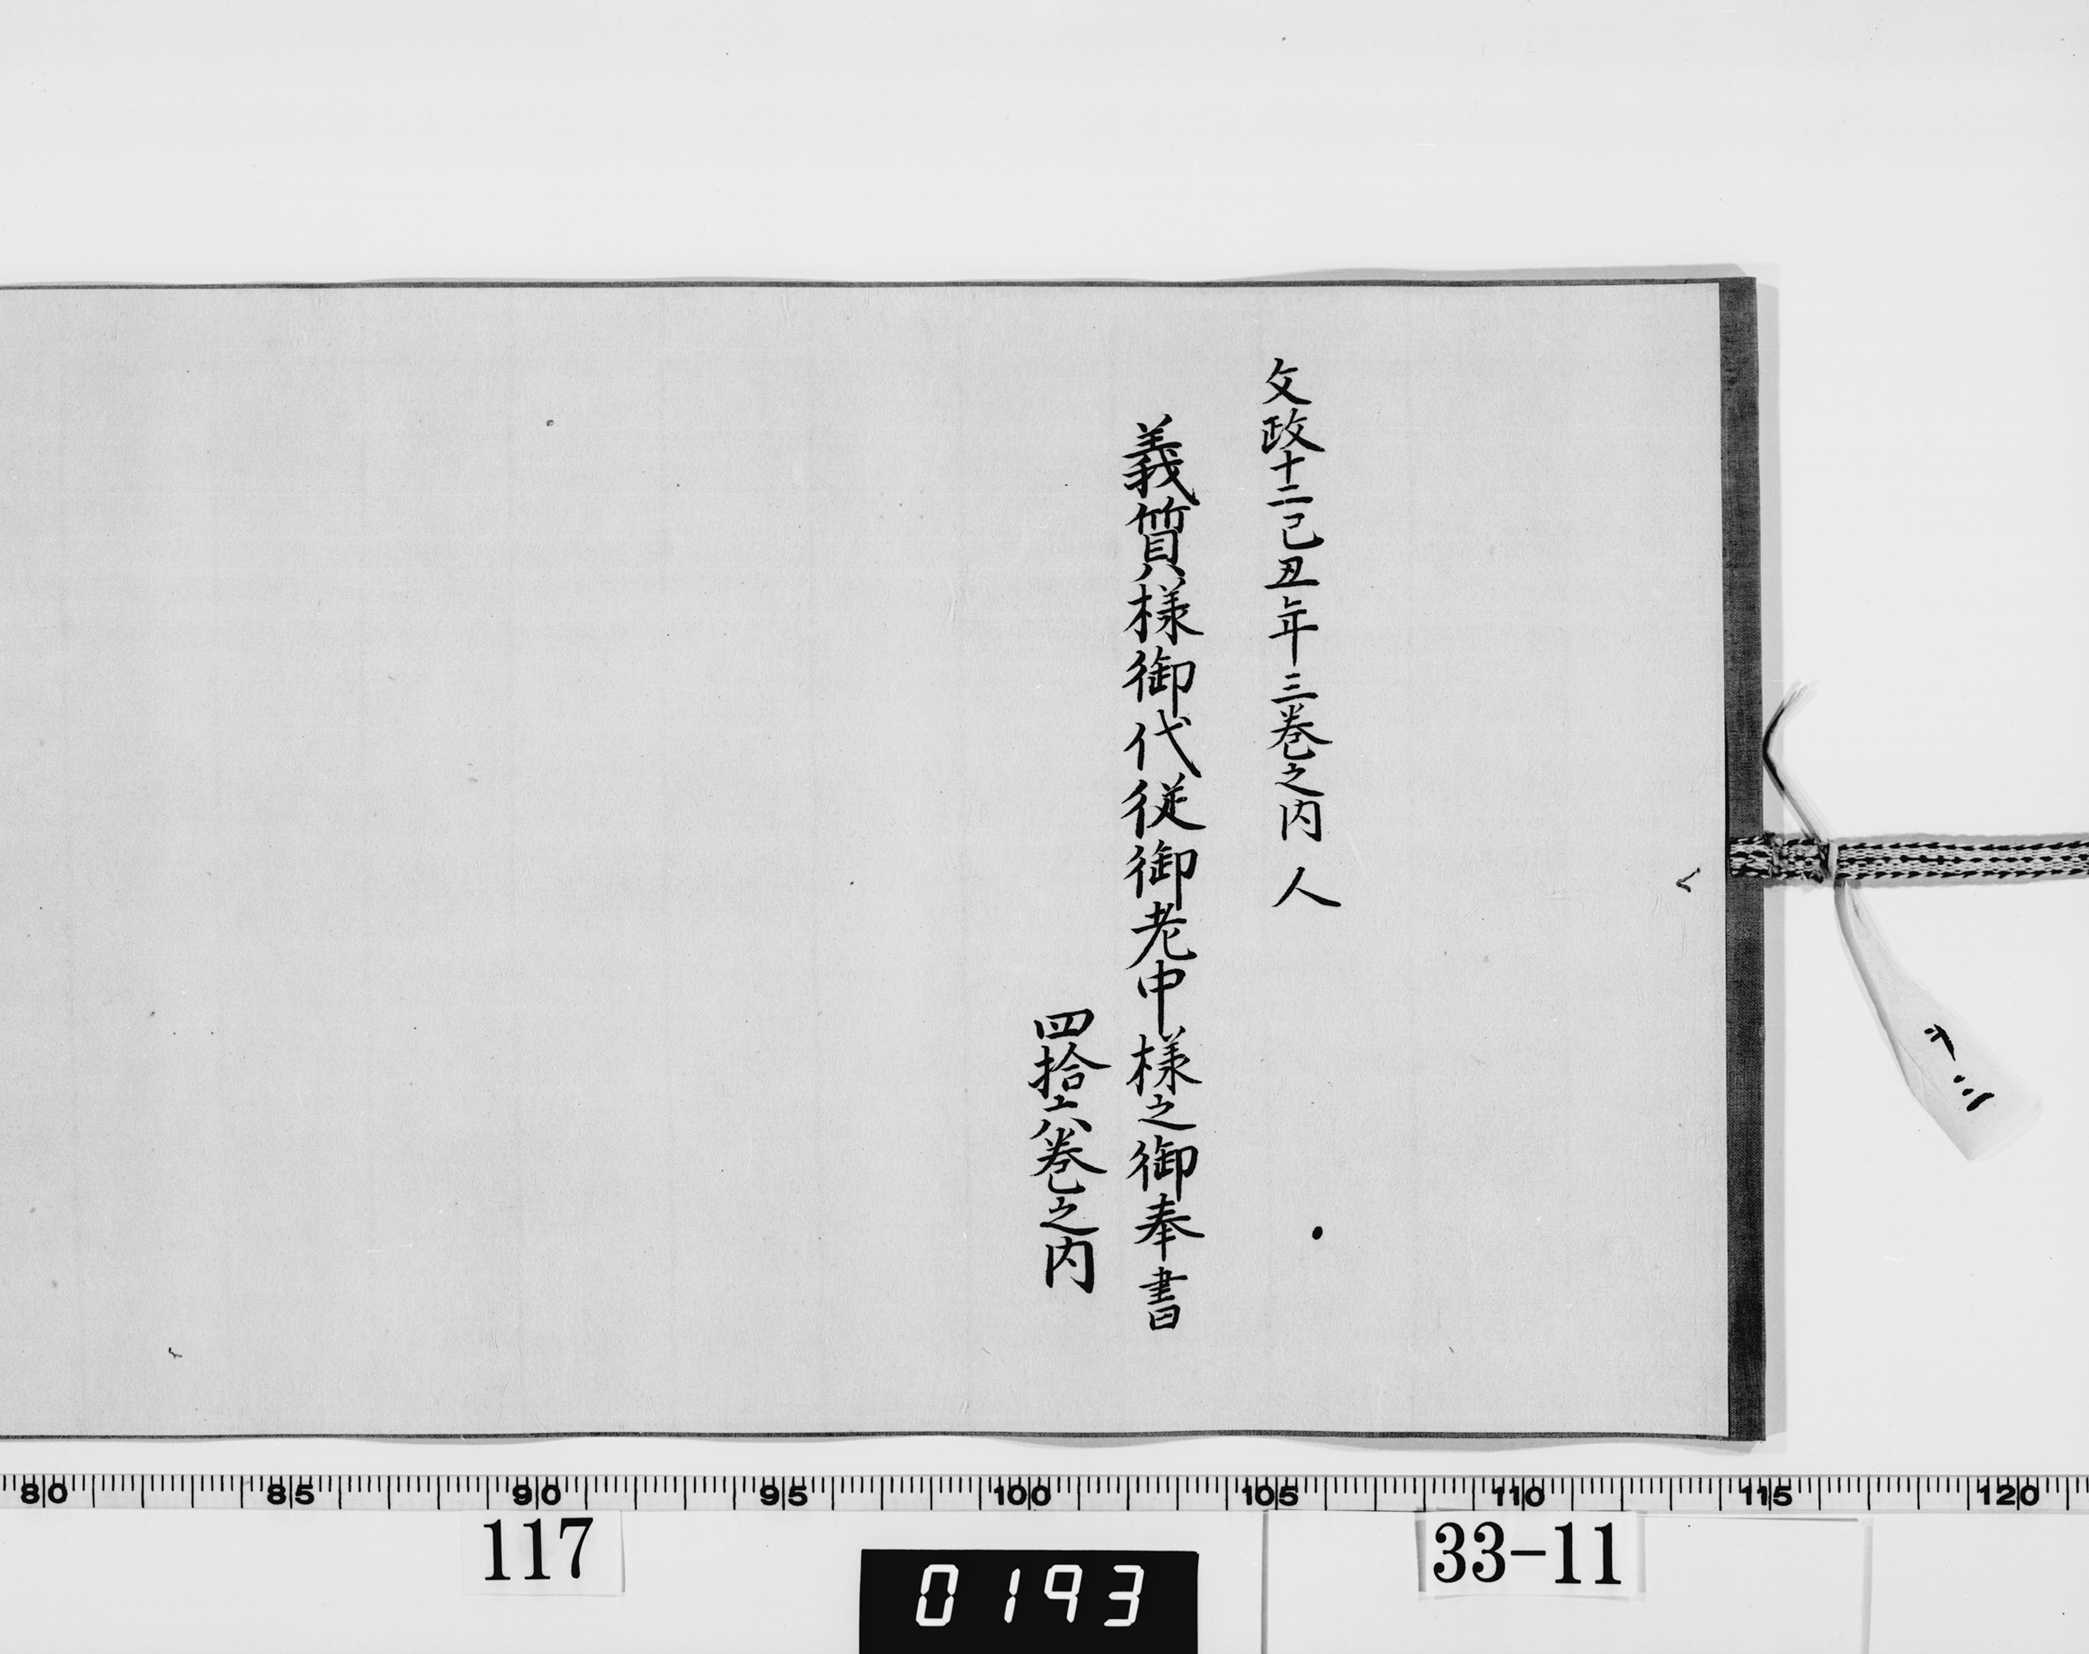 文政十二己丑年三巻之内 人
義質様御代従御老中様之御奉書
四拾六巻之内
80 85 90 95 100 105 110 115 120
117
0193
33-11